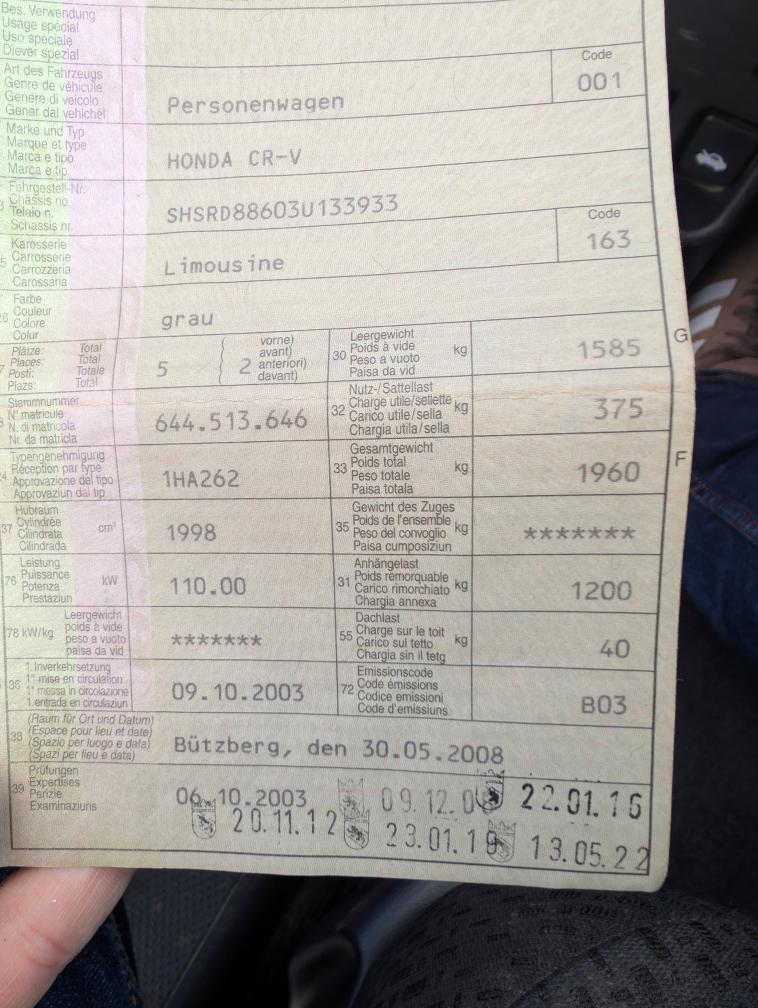 Bes. Verwendung
Usage spécial
Uso speciale
Diever spezial
Art des Fahrzeugs
Genre de véhicule
Genere di veicolo
Gener dal vehichel
Personenwagen
Code
001
Marke und Typ
Marque et type
Marca e tipo
Marca e tip
HONDA CR-V
Fahrgestell-Nr.
Châssis no
Telaio n.
Schassis nr.
SHSRD88603U133933
Karosserie
Carrosserie
Carrozzeria
Carossaria
Limousine
Code
163
Farbe
Couleur
Colore
Colur
grau
Plätze: Total
Places: Total
Posti: Totale
Plazs: Total
5
2
vorne)
avant)
anteriori)
davant)
30
Leergewicht
Poids à vide
Peso a vuoto
Paisa da vid
kg
1585
G
Stammnummer
N° matricule
N. di matricola
Nr. da matricla
644.513.646
32
Nutz-/Sattellast
Charge utile/sellette
Carico utile/sella
Chargia utila/sella
kg
375
Typengenehmigung
Réception par type
Approvazione del tipo
Approvaziun dal tip
1HA262
33
Gesamtgewicht
Poids total
Peso totale
Paisa totala
kg
1960
F
37
Hubraum
Cylindrée
Cilindrata
Cilindrada
cm³
1998
35
Gewicht des Zuges
Poids de l'ensemble
Peso del convoglio
Paisa cumposiziun
kg
*******
76
Leistung
Puissance
Potenza
Prestaziun
kW
110.00
31
Anhängelast
Poids remorquable
Carico rimorchiato
Chargia annexa
kg
1200
78 kW/kg
Leergewicht
poids à vide
peso a vuoto
paisa da vid
*******
55
Dachlast
Charge sur le toit
Carico sul tetto
Chargia sin il tetg
kg
40
36
1. Inverkehrsetzung
1re mise en circulation
1a messa in circolazione
1. entrada en circulaziun
09.10.2003
72
Emissionscode
Code émissions
Codice emissioni
Code d'emissiuns
B03
38
(Raum für Ort und Datum)
(Espace pour lieu et date)
(Spazio per luogo e data)
(Spazi per lieu e data)
Bützberg, den 30.05.2008
39
Prüfungen
Expertises
Perizie
Examinaziuns
06.10.2003 09.12.0 22.01.16
20.11.12 23.01.19 13.05.22